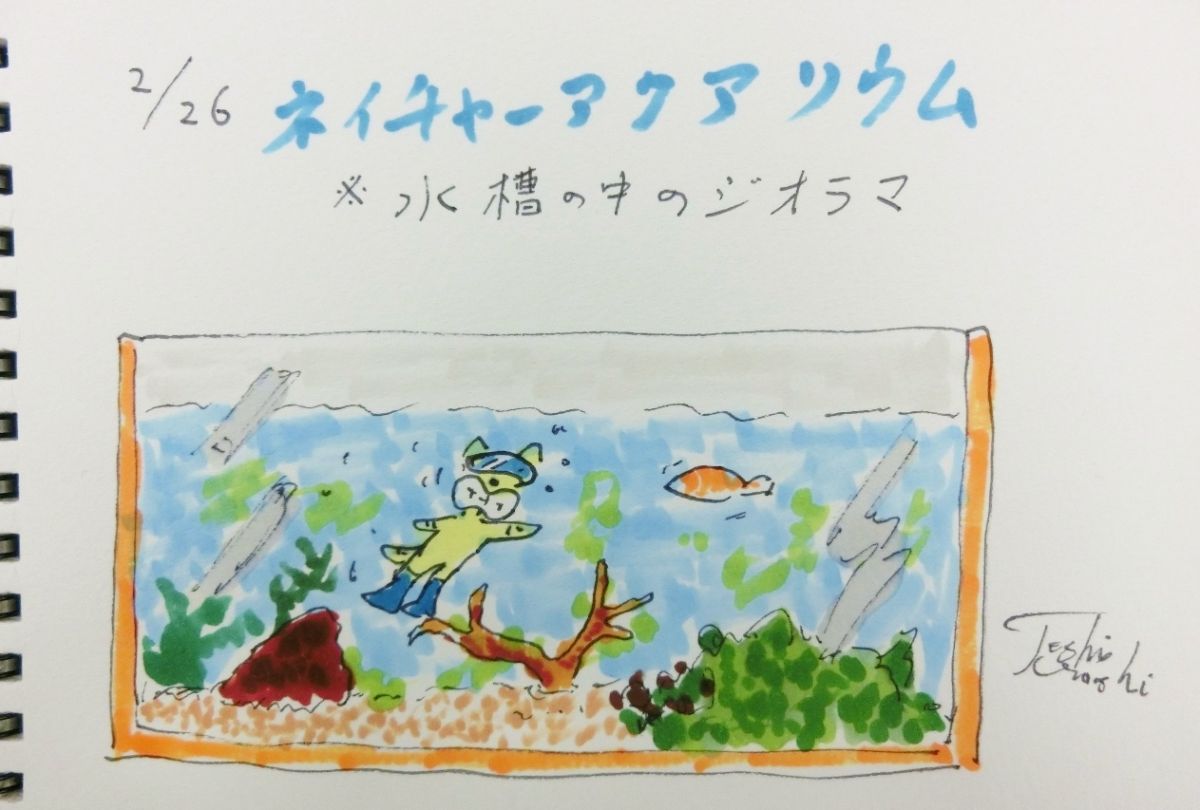 2/26 ネイチャーアクアリウム
※水槽の中のジオラマ